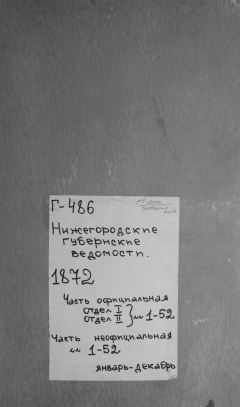 Г-486
Нижегородские
губернские
ведомости.
1872
Часть официальная
Отдел I
Отдел II } № 1-52
Часть неофициальная
№ 1-52
январь-декабрь